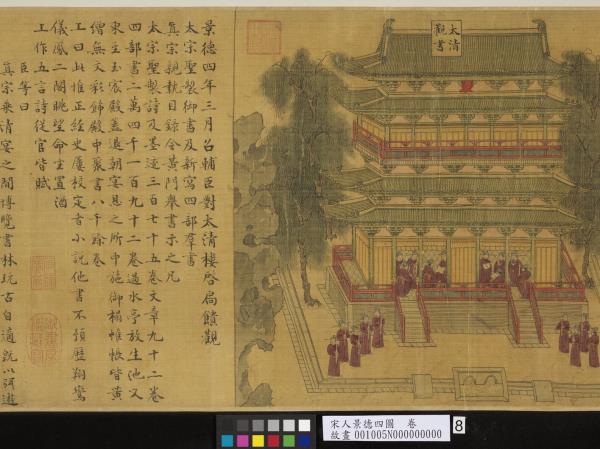 太清
觀書
景德四年三月召輔臣對太清樓啓扃饋觀
太宗聖製御書及新寫四部羣書
真宗親執目錄令黃門舉書示之凡
太宗聖製詩及墨迹三百七十五卷文章九十二卷
四部書二萬四千一百九十二卷過水亭放生池又
東至玉宸殿蓋退朝宴息之所中施御榻帷帳皆黃
繒無文彩飾殿中聚書八千餘卷
上曰此惟正經史屢校定者小說他書不預歷翔鸞
儀鳳二閣眺望命坐置酒
上作五言詩從官皆賦
臣等曰
真宗乘清宴之間博覽書林玩古自適既以弭遊
宋人景德四圖 卷
故畫 001005N000000000
8